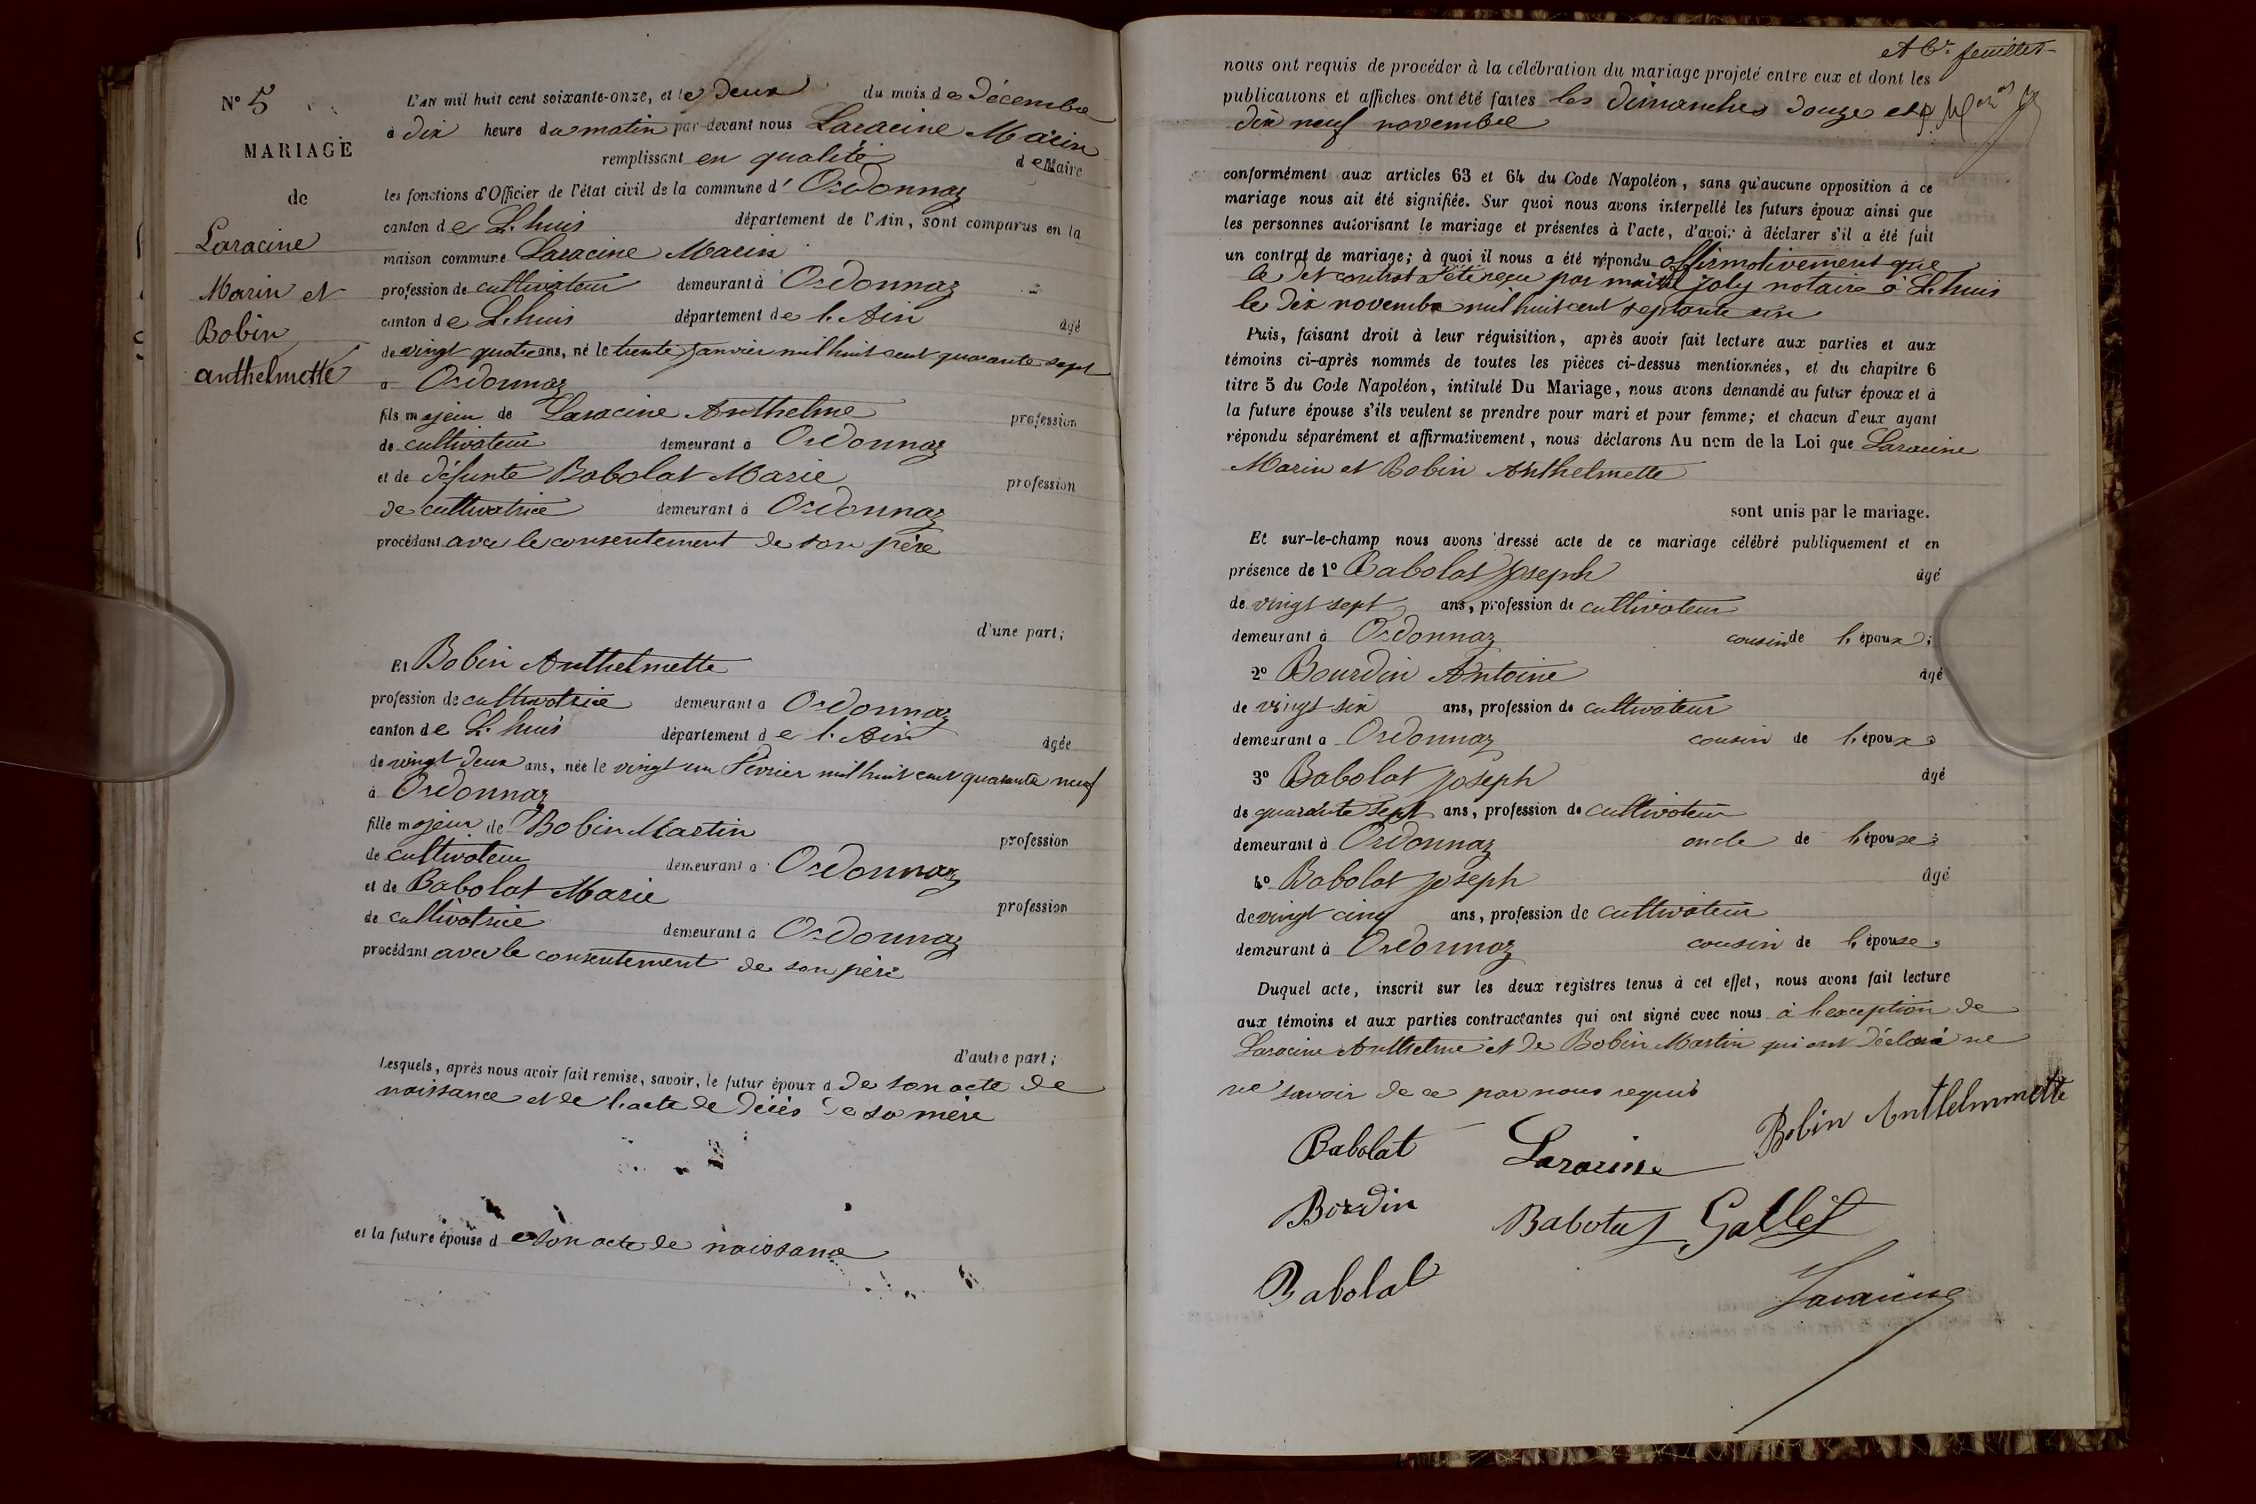 N° 5
MARIAGE
de
Laracine
Marin et
Bobin
anthelmette
L'AN mil huit cent soixante-onze, et le deux du mois de décembre
à dix heure du matin par-devant nous Laracine Marin
remplissant en qualité de Maire
les fonctions d'Officier de l'état civil de la commune d' Ordonnaz
canton de L.huis département de l'Ain, sont comparus en la
maison commune Laracine Marin
profession de cultivateur demeurant à Ordonnaz
canton de L.huis département de l. Ain âgé
de vingt quatre ans, né le trente janvier mil huit cent quarante sept
à Ordonnaz
fils majeur de Laracine Anthelme profession
de cultivateur demeurant à Ordonnaz
et de défunte Babolat Marie profession
de cultivatrice demeurant à Ordonnaz
procédant avec le consentement de son père
d'une part;
Et Bobin Anthelmette
profession de cultivatrice demeurant à Ordonnaz
canton de L. huis département de l. Ain âgée
de vingt deux ans, née le vingt un Février mil huit cent quarante neuf
à Ordonnaz
fille majeur de Bobin Martin profession
de cultivateur demeurant à Ordonnaz
et de Babolat Marie profession
de cultivatrice demeurant à Ordonnaz
procédant avec le consentement de son père
d'autre part;
Lesquels, après nous avoir fait remise, savoir, le futur époux d de son acte de
naissance et de l.acte de décès de sa mère
et la future épouse d e son acte de naissance
et 6e feuillet
nous ont requis de procéder à la célébration du mariage projeté entre eux et dont les
publications et affiches ont été faites les dimanches douze et
dix neuf novembre
conformément aux articles 63 et 64 du Code Napoléon, sans qu'aucune opposition à ce
mariage nous ait été signifiée. Sur quoi nous avons interpellé les futurs époux ainsi que
les personnes autorisant le mariage et présentes à l'acte, d'avoir à déclarer s'il a été fait
un contrat de mariage; à quoi il nous a été répondu affirmativement que
le dit contrat a été reçu par maitre joly notaire à L.huis
le dix novembre mil huit cent septante un
Puis, faisant droit à leur réquisition, après avoir fait lecture aux parties et aux
témoins ci-après nommés de toutes les pièces ci-dessus mentionnées, et du chapitre 6
titre 5 du Code Napoléon, intitulé Du Mariage, nous avons demandé au futur époux et à
la future épouse s'ils veulent se prendre pour mari et pour femme; et chacun d'eux ayant
répondu séparément et affirmativement, nous déclarons Au nom de la Loi que Laracine
Marin et Bobin Anthelmette
sont unis par le mariage.
Et sur-le-champ nous avons dressé acte de ce mariage célébré publiquement et en
présence de 1° Babolat Joseph âgé
de vingt sept ans, profession de cultivateur
demeurant à Ordonnaz cousin de l. époux;
2° Bourdin Antoine âgé
de vingt six ans, profession de cultivateur
demeurant à Ordonnaz cousin de l. époux;
3° Babolat Joseph âgé
de quarante sept ans, profession de cultivateur
demeurant à Ordonnaz oncle de l. épouse;
4° Babolat Joseph âgé
de vingt cinq ans, profession de cultivateur
demeurant à Ordonnaz cousin de l. épouse.
Duquel acte, inscrit sur les deux registres tenus à cet effet, nous avons fait lecture
aux témoins et aux parties contractantes qui ont signé avec nous à l.exception de
Laracine Anthelme et de Bobin Martin qui ont déclaré ne
ne savoir de ce par nous requis
Bobin Anthelmmette
Babolat Laracine
Bordin Babolat Gallet
Babolat
Laracine